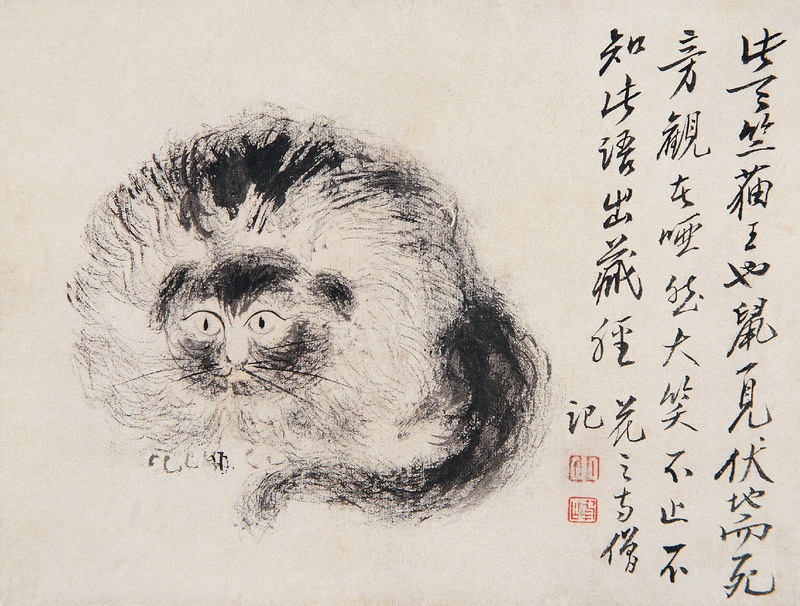 此天竺猫王也鼠一見伏地而死
旁觀者啞然大笑不止不
知此語出藏經 花之寺僧
記